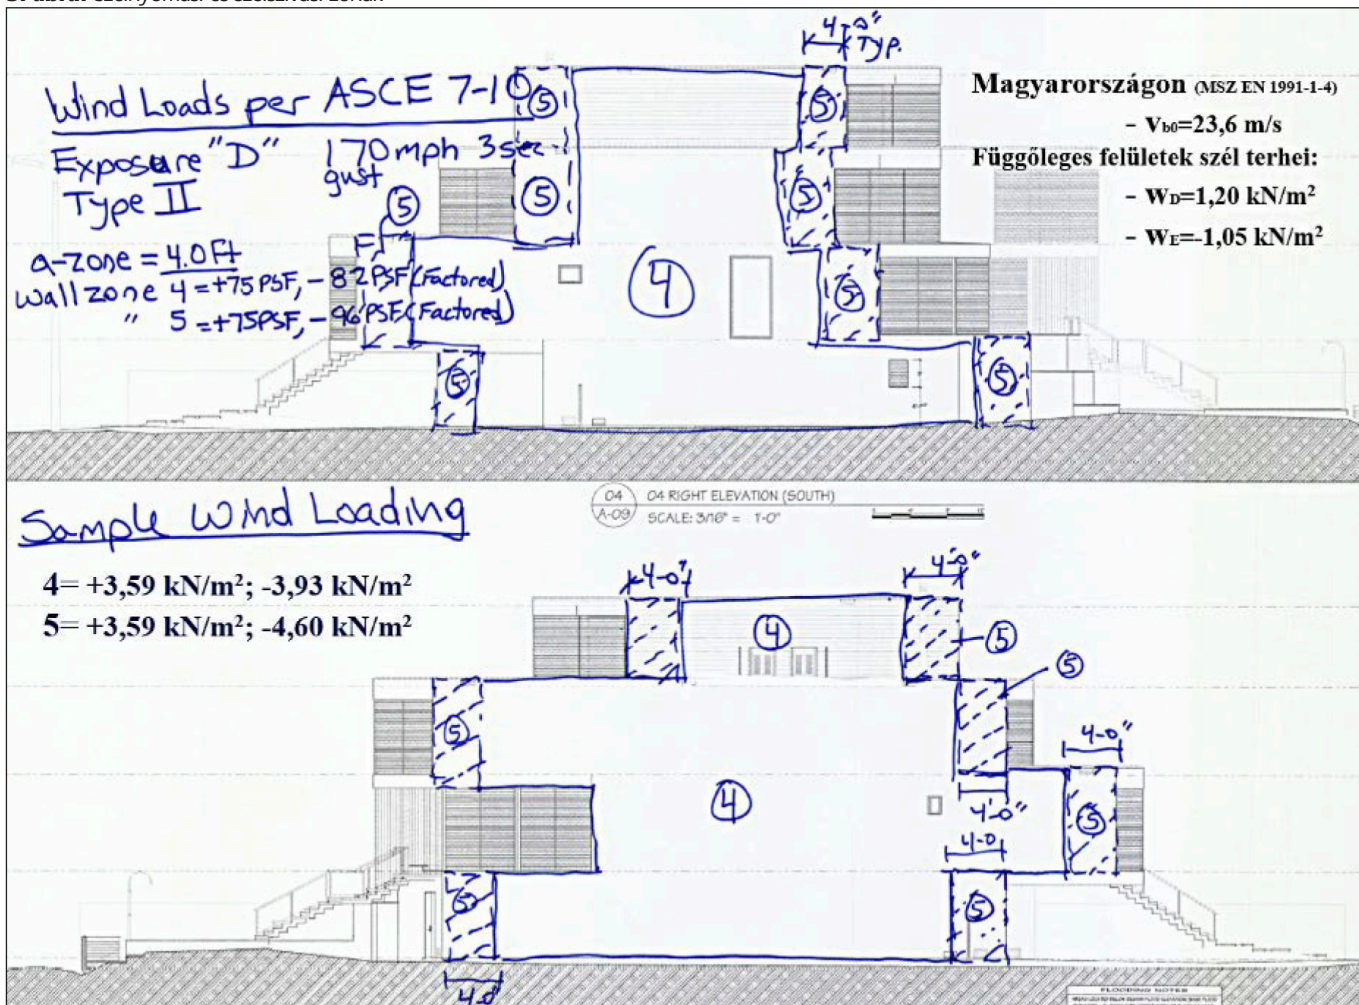 4'-0"
TYP.
Wind Loads per ASCE 7-10
Exposure "D" 170 mph 3sec
gust
Type II
a-zone = 4.0 Ft
Wall zone 4 = +75 PSF, - 82 PSF (Factored)
" 5 = +75 PSF, - 96 PSF (Factored)
5
5
5
5
5
5
5
5
4
Magyarországon (MSZ EN 1991-1-4)
- vb0=23,6 m/s
Függőleges felületek szél terhei:
- wD=1,20 kN/m²
- wE=-1,05 kN/m²
04 04 RIGHT ELEVATION (SOUTH)
A-09 SCALE: 3/16" = 1'-0"
Sample Wind Loading
4= +3,59 kN/m²; -3,93 kN/m²
5= +3,59 kN/m²; -4,60 kN/m²
4-0"
4'-0"
4
5
5
5
4-0"
4
4'-0"
5
4-0
5
5
4-0"
FLOODING NOTES